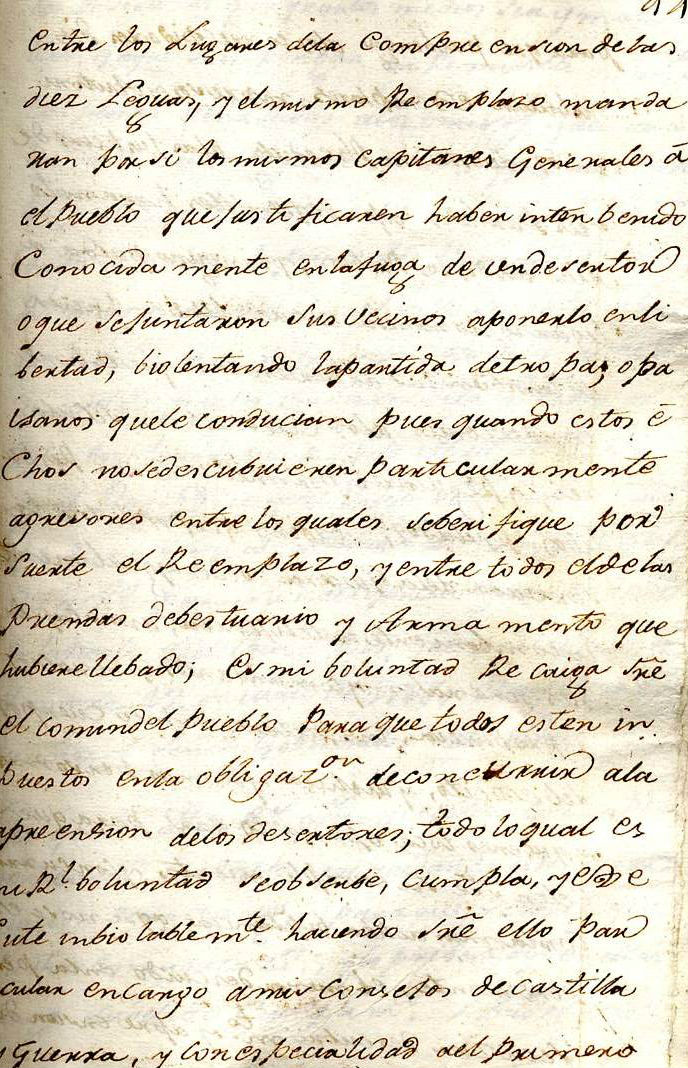 entre los Lugares dela Compreension delas
diez Leguas, y el mismo Reemplazo manda
ran por si los mismos Capitanes Generales á
el Pueblo que Justificaren haber interbenido
Conocida mente enlafuga de un desertor
o que seJuntaron sus Vecinos aponerlo enli
bertad, biolentando lapartida detropa, o pa
isanos quele conducian pues quando estos é
Chos nosedescubrieren particularmente
agresores entre los quales seberifique por
suerte el Reemplazo, y entre todos eldelas
Prendas debestuario y Arma mento que
hubiere llebado; es mi boluntad Recaiga sre
el comundel Pueblo Para que todos esten in
puestos enla obligazon. deconcurrir ala
apreension delos desertores; todo loqual es
Rl. boluntad seobserbe, Cumpla, y ege
cute inbiolablemte. haciendo sre ello Par
cular encargo amis Consejos de Castilla
y Guerra, y con especialidad al Primero